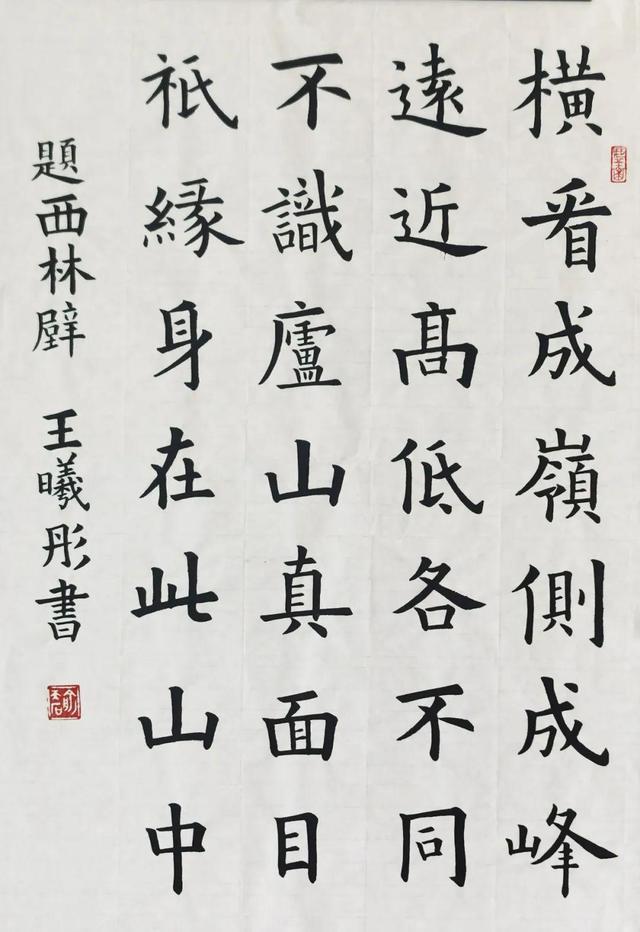 橫看成嶺側成峰
遠近髙低各不同
不識廬山真面目
祇緣身在此山中
題西林壁 王曦彤書